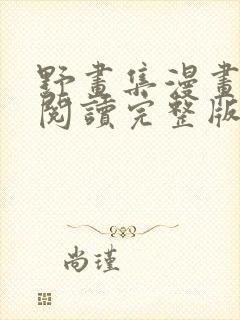 野畫集漫畫
閱讀完整版
尚瑾